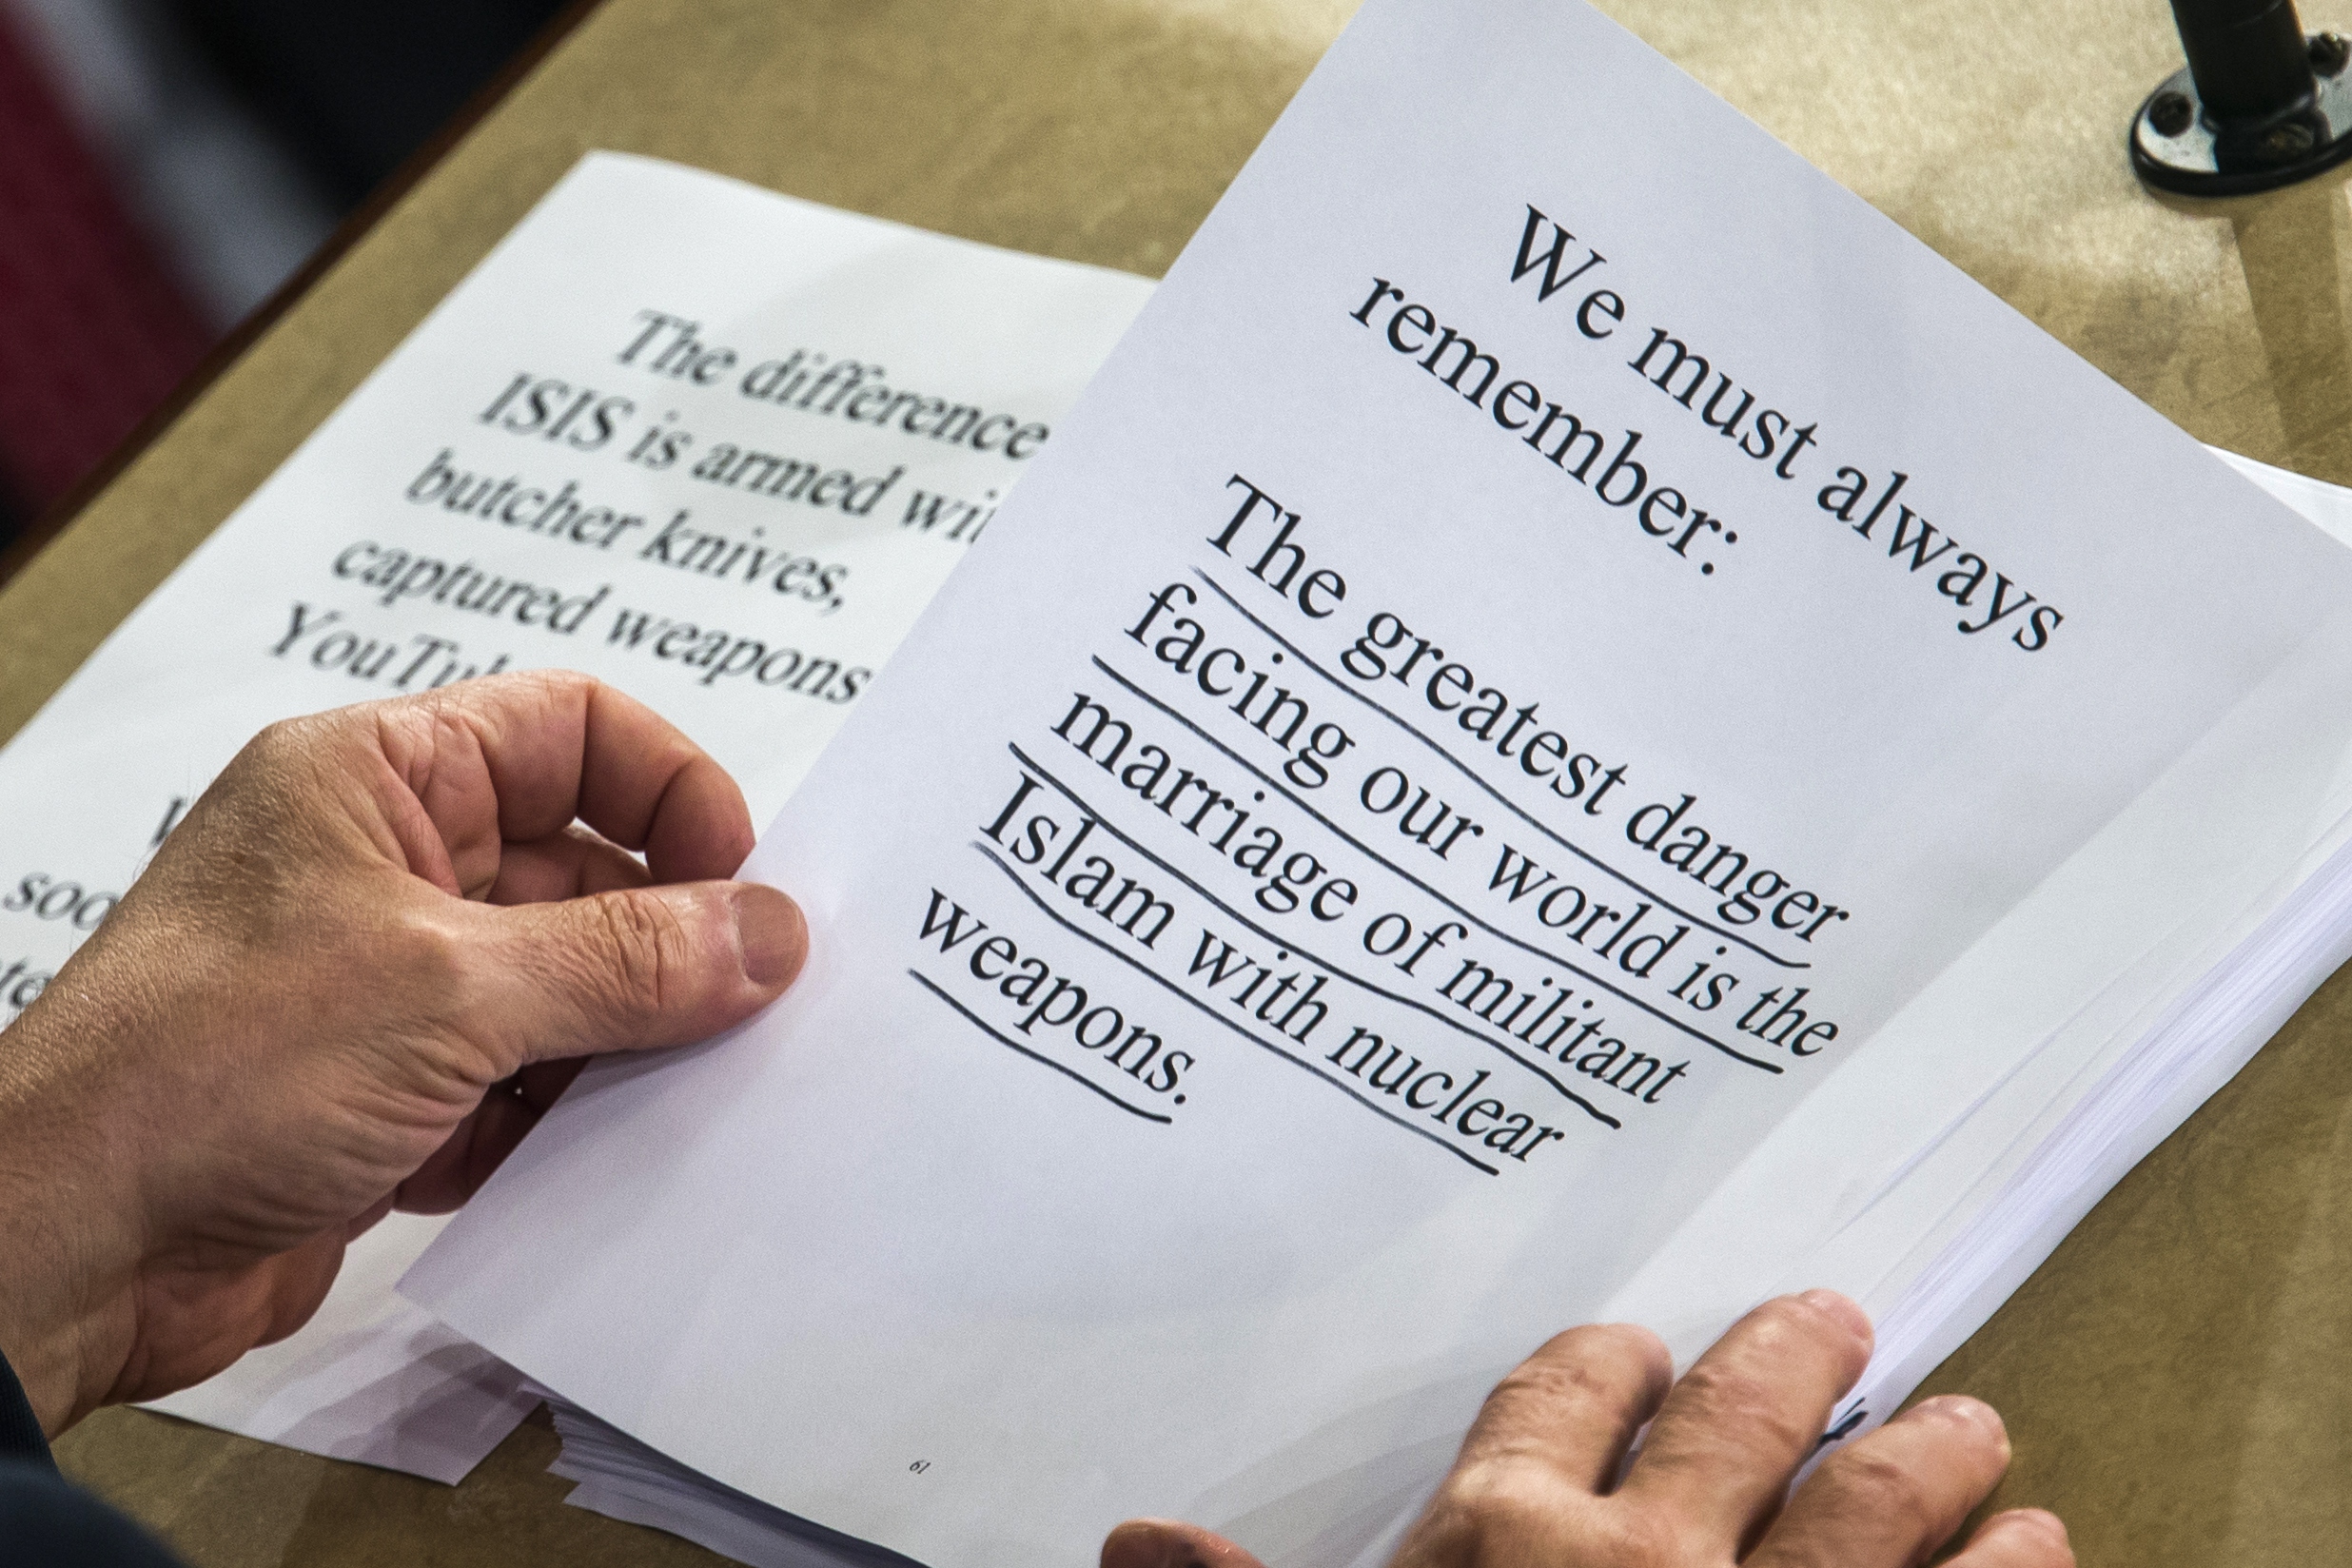 The difference
ISIS is armed
butcher knives,
captured weapons
We must always
remember:
The greatest danger
facing our world is the
marriage of militant
Islam with nuclear
weapons.
61